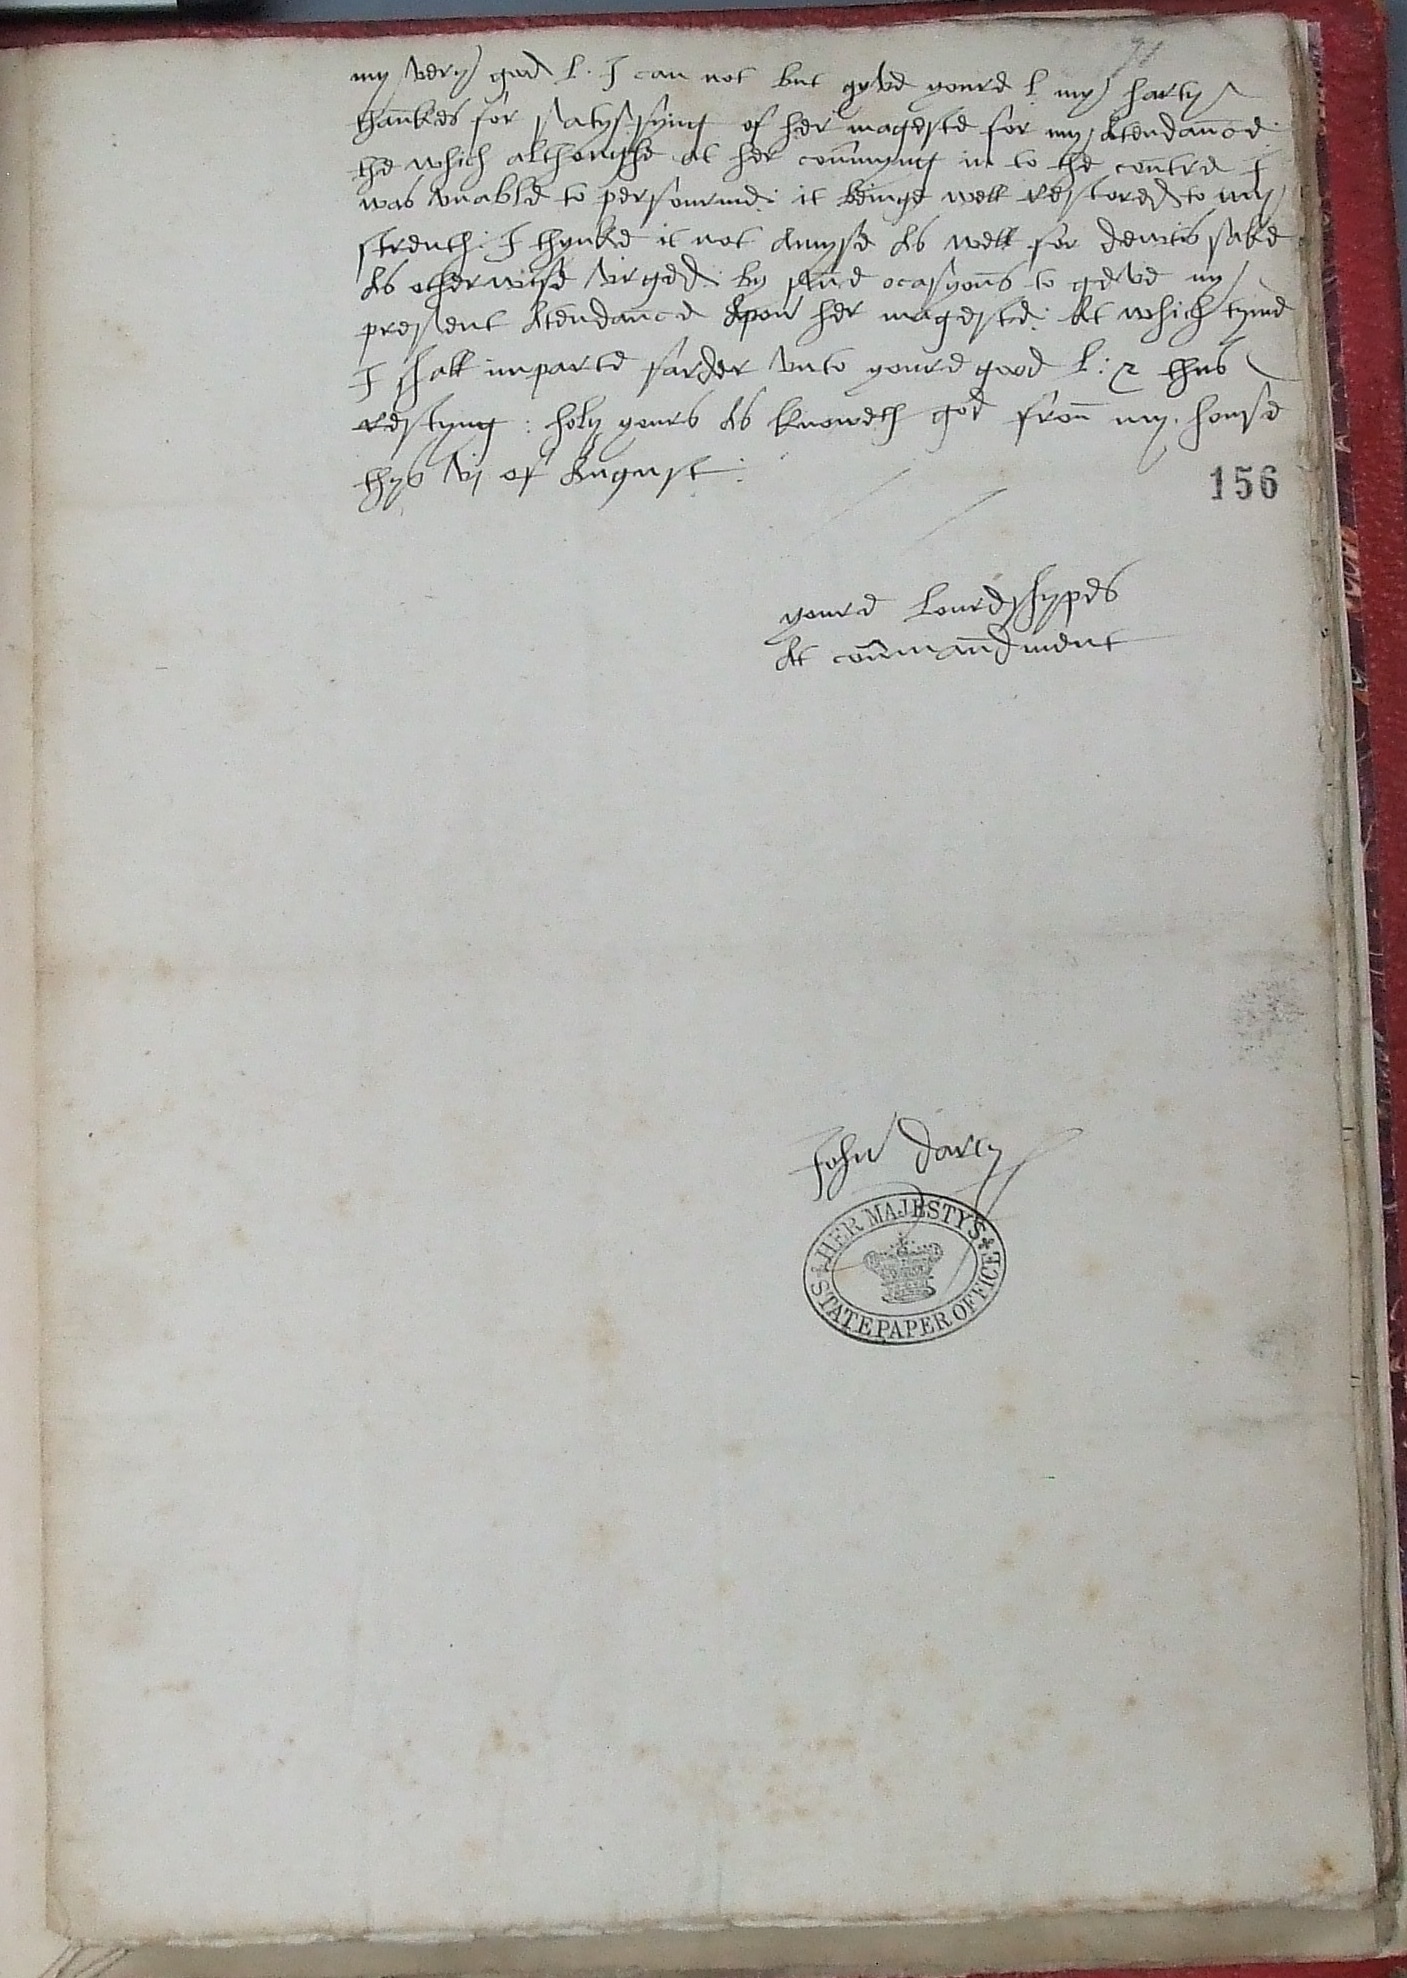 71
my very good l. I can not but gyve youre l my harty
thankes for satysfying of her mageste for my Atendance
the which althoughe at her comyng in to the contre I
was vnable to perfourme: it beinge well restored to my
strenth: I thynke it not Amyse As well for dewtis sake
As otherwise vrged: by sume ocasyons to geve my
present Atendance Apon her mageste: At which tyme
I shall imparte farder vnto youre good l: & thus
restyng: holy yours As knoweth god from my house
thys vj of August:
156
youre lourdshypes
At commandment
John darcy
HER MAJESTY'S
STATE PAPER OFFICE